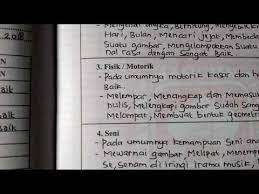 - Mengenal angka, Berhitung, Mengenal
Hari, Bulan, Mencari jejak, Membeda
Suatu gambar, Mengelompokkan Suatu
nal rasa dengan Sangat Baik
2018
3. Fisik / Motorik
- Pada umumnya motorik kasar dan ha
Baik.
- Melempar, Menangkap dan Memasuk
nulis, Melengkapi gambar Sudah Sang
Melompat, Membuat bentuk geometri
4. Seni
- Pada umumnya kemampuan Seni ana
- Mewarnai gambar, Melipat, Menem
Se, Senam di iringi irama musik,